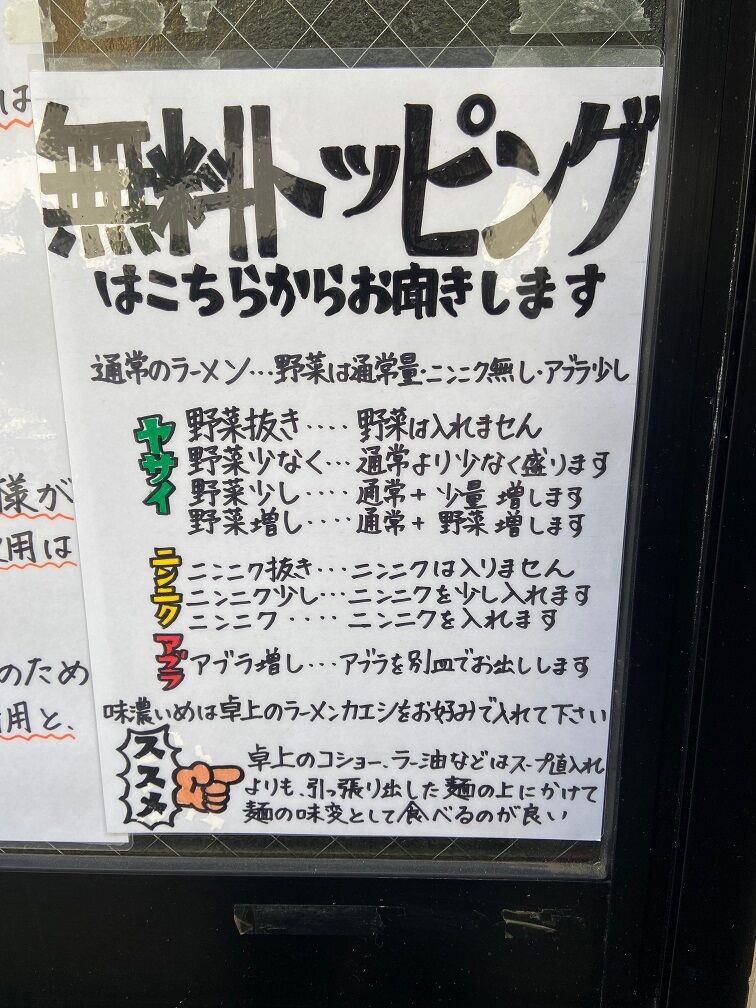 無料トッピング
はこちらからお聞きします
通常のラーメン…野菜は通常量・ニンニク無し・アブラ少し
ヤサイ
野菜抜き‥‥野菜は入れません
野菜少なく…通常より少なく盛ります
野菜少し‥‥通常+少量増します
野菜増し‥‥通常+野菜増します
ニンニク
ニンニク抜き…ニンニクは入りません
ニンニク少し…ニンニクを少し入れます
ニンニク‥‥ニンニクを入れます
アブラ
アブラ増し…アブラを別皿でお出しします
味濃いめは卓上のラーメンカエシをお好みで入れて下さい
ススメ
卓上のコショー、ラー油などはスープ直入れ
よりも、引っ張り出した麺の上にかけて
麺の味変として食べるのが良い
は
様が
用は
のため
用と、